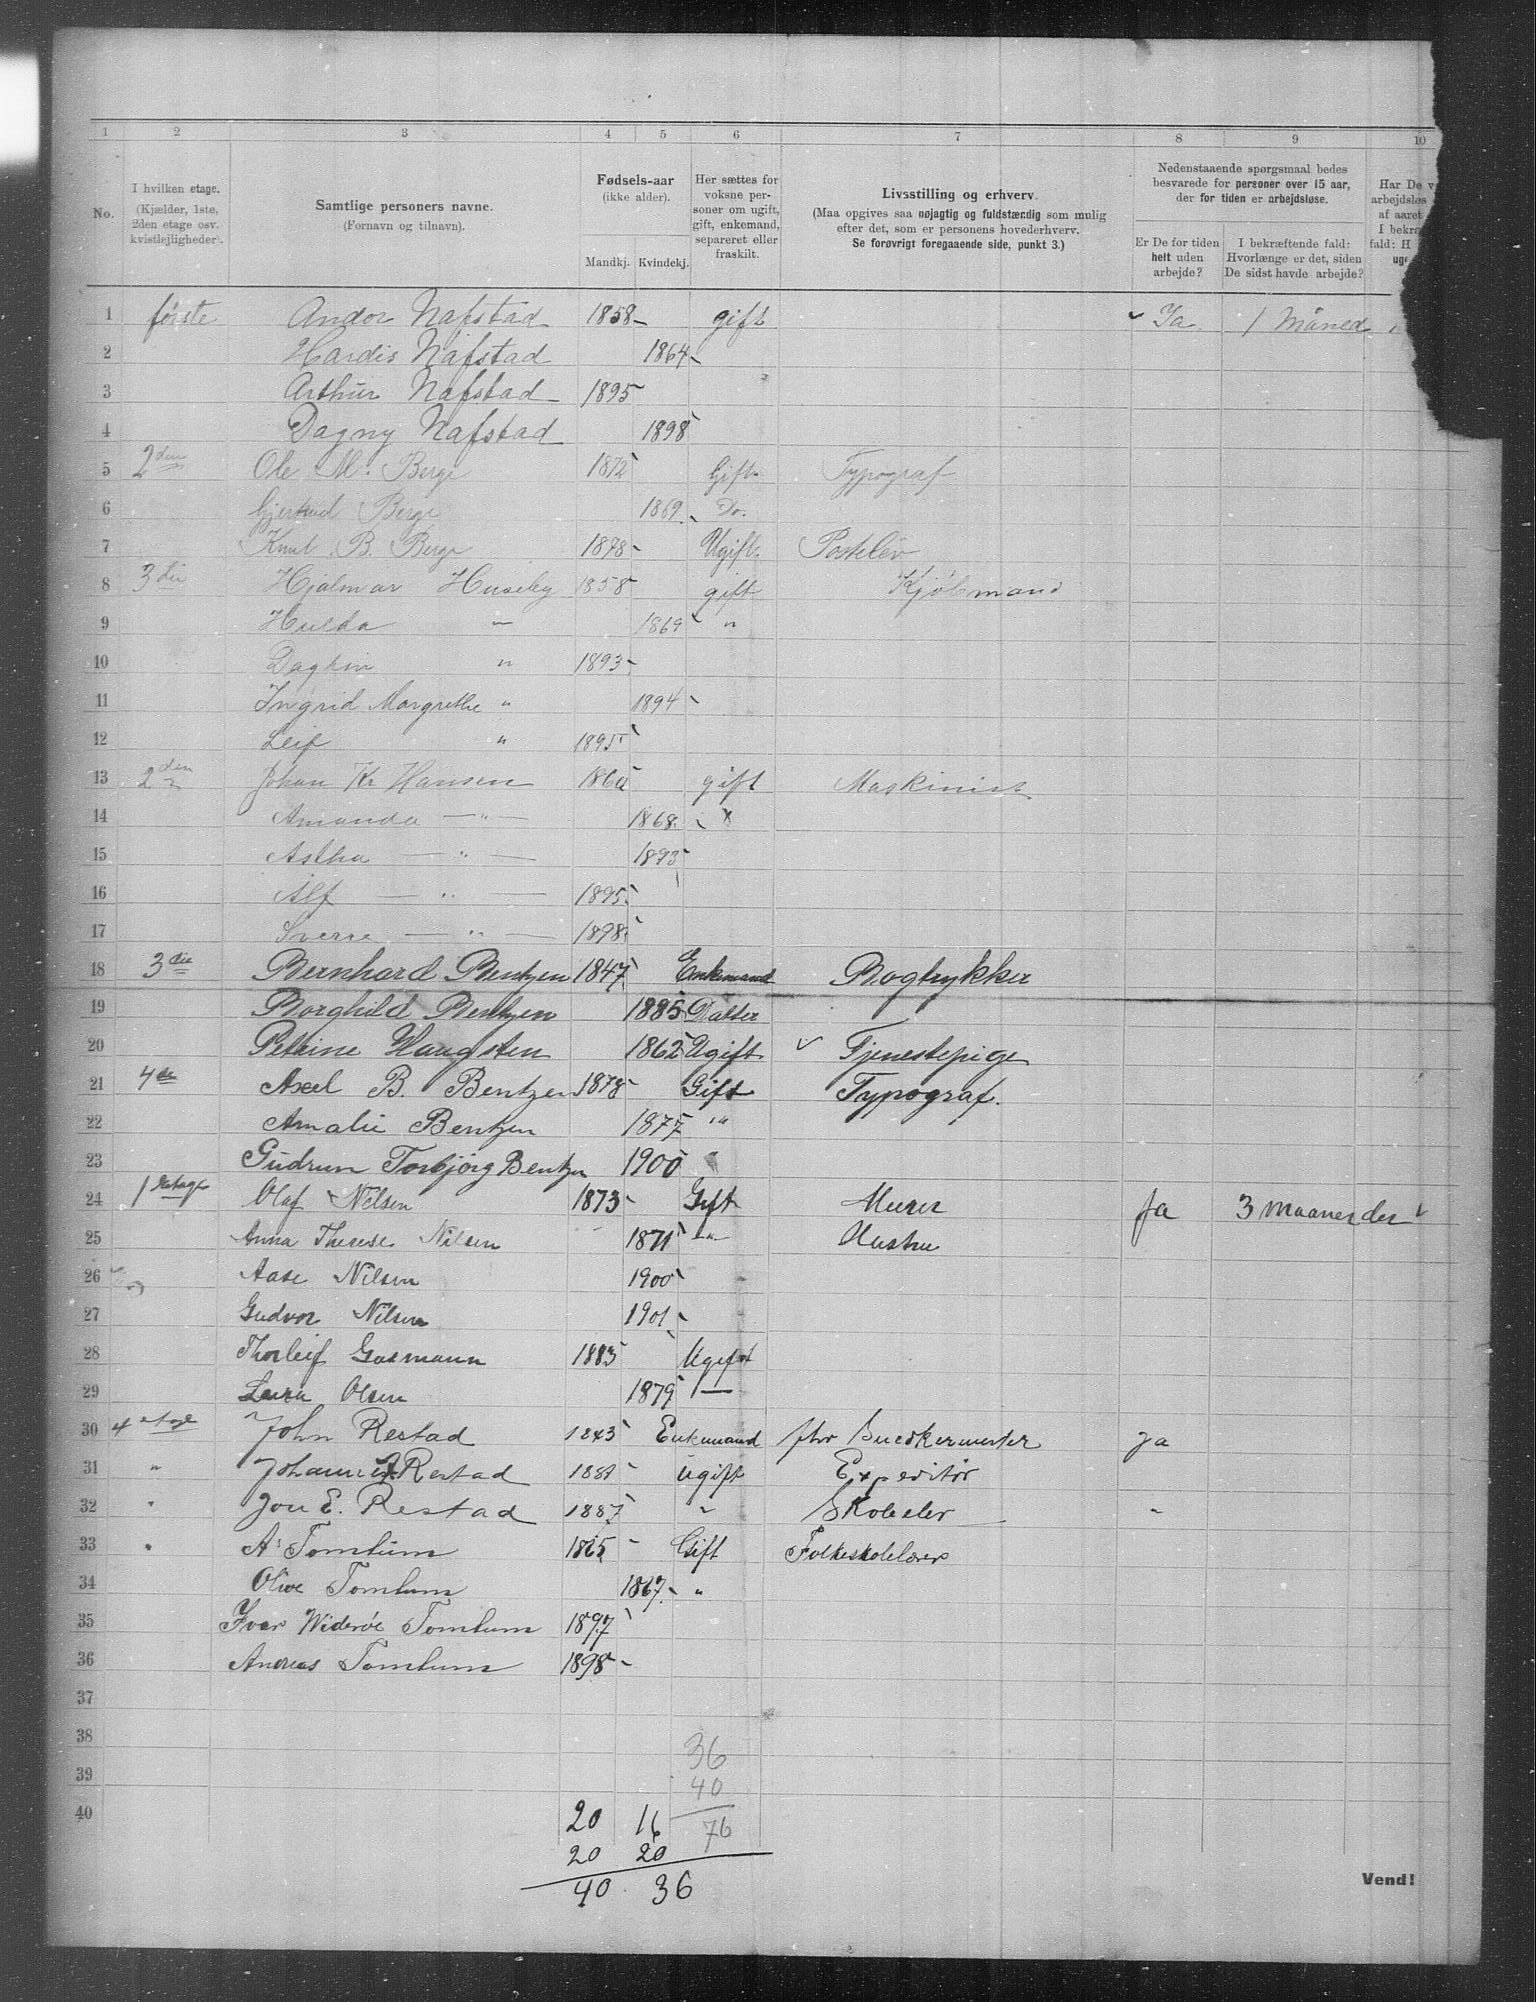 1 2 3 4 5 6 7 8 9 10
No. I hvilken etage. (Kjælder, 1ste, 2den etage osv. kvistlejligheder). Samtlige personers navne. (Fornavn og tilnavn). Fødsels-aar (ikke alder). Mandkj. Kvindekj. Her sættes for voksne personer om ugift, gift, enkemand, separeret eller fraskilt. Livsstilling og erhverv. (Maa opgives saa nøjagtig og fuldstændig som mulig efter det, som er personens hovederhverv. Se forøvrigt foregaaende side, punkt 3.) Nedenstaaende spørgsmaal bedes besvarede for personer over 15 aar, der for tiden er arbejdsløse. Er De for tiden helt uden arbejde? I bekræftende fald: Hvorlænge er det, siden De sidst havde arbejde? Har De arbejdsløs af aaret I bekræ fald: H
1 første Andor Nafstad 1858 gift Ja 1 Måned
2 Hardis Nafstad 1864
3 Arthur Nafstad 1895
4 Dagny Nafstad 1898
5 2den Ole M. Berge 1872 Gift Typograf
6 Gjertrud Berge 1869 Do.
7 Knut B. Berge 1878 Ugift. Postelev
8 3die Hjalmar Huseby 1858 gift Kjøbmand
9 Hulda " 1869 "
10 Dagfin " 1893
11 Ingrid Margrethe " 1894
12 Leif " 1895
13 2den Johan Kr Hansen 1860 gift Maskinist
14 Amanda — " — 1868
15 Astha — " — 1893
16 Alf — " — 1895
17 Sverre — " — 1898
18 3die Bernhard Bentzen 1847 Enkemand Bogtrykker
19 Borghild Bentzen 1885 Datter
20 Petrine Haugsten 1862 Ugift Tjenestepige
21 4de Axel B. Bentzen 1878 Gift Typograf.
22 Amalie Bentzen 1877 "
23 Gudrun Torbjørg Bentzen 1900 "
24 1 etage Olaf Nilsen 1873 Gift Murer Ja 3 maaneder
25 Anna Therese Nilsen 1871 " Hustru
26 Aase Nilsen 1900
27 Gudvor Nilsen 1901
28 Thorleif Gasmann 1883 Ugift
29 Laura Olsen 1879 —
30 4 etage John Restad 1843 Enkemand fhv Snedkermester Ja
31 " Johannes Restad 1881 ugift Expeditør
32 " Jon E. Restad 1887 " Skoleelev "
33 " A. Tomlum 1865 Gift Folkeskolelærer
34 Olive Tomlum 1867 "
35 Ivar Widerøe Tomlum 1897
36 Andreas Tomlum 1898
37
38 36
39 40
40 20 16 76
20 20
40 36
Vend!